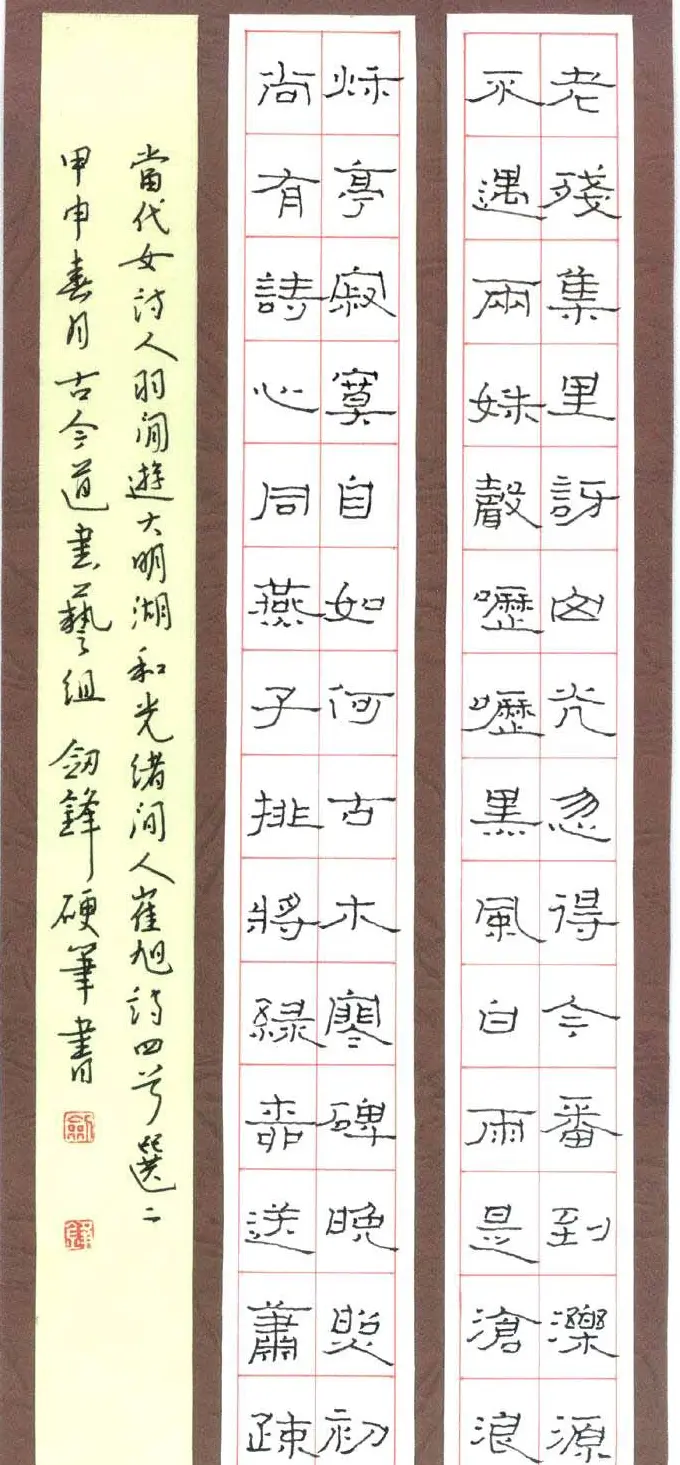 老殘集里訝山光忽得今番到濼源
不遇兩妹聲嚦嚦黑風白雨是滄浪
秌亭寂寞自如何古木寒碑晚照初
尚有詩心同燕子排將綠柳送蕭疎
當代女詩人羽閒遊大明湖和光緒間人崔旭詩四首選二
甲申春月古今道書藝組 劒鋒硬筆書